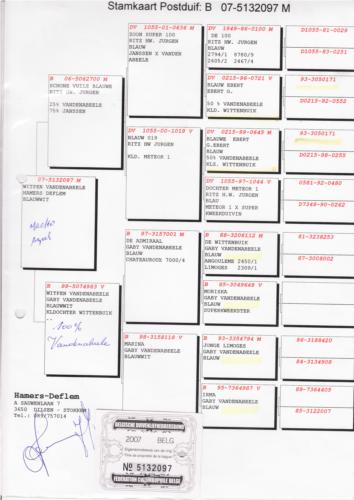 Stamkaart Postduif: B 07-5132097 M
DV 1055-01-0636 M
ZOON SUPER 100
RITZ HW. JURGEN
BLAUW
JANSSEN X VANDEN
ABEELE
DV 1949-96-0100 M
DE 100
RITZ HW. JURGEN
BLAUW
2794/1 8780/9
2605/2 2467/4
D1055-81-0029
D1055-83-0251
B 06-5062700 M
SCHONE VUILE BLAUWE
RITZ HW. JURGEN
25% VANDENABEELE
75% JANSSEN
DV 0215-96-0721 V
BLAUW EBERT
EBERT G.
50 % VANDENABEELE
KLD. WITTENBUIK
93-3050171
D0215-92-0552
DV 1055-00-1019 V
BLAUW 019
RITZ HW JURGEN
KLD. METEOR 1
DV 0215-99-0645 M
BLAUWE EBERT
G.EBERT
BLAUW
50% VANDENABEELE
KLS. WITTENBUIK
93-3050171
D0215-98-0255
07-5132097 M
WITPEN VANDENABEELE
HAMERS DEFLEM
BLAUWWIT
DV 1055-97-1044 V
DOCHTER METEOR 1
RITZ H.W. JURGEN
BLAU
METEOR 1 X SUPER
KWEEKDUIVIN
0581-92-0480
D7349-90-0262
B 97-3157001 M
DE ADMIRAAL
GABY VANDENABEELE
BLAUW
CHATEAUROUX 7000/4
B 88-3206112 M
DE WITTENBUIK
GABY VANDENABEELE
BLAUW
ANGOULEME 2450/1
LIMOGES 2308/1
81-3238253
87-3008002
B 98-5074983 V
WITPEN VANDENABEELE
GABY VANDENABEELE
BLAUWWIT
KLDOCHTER WITTENBUIK
100%
Vandenabeele
B 95-3049649 V
MORISKA
GABY VANDENABEELE
BLAUW
SUPERKWEEKSTER
B 98-3158118 V
MARINA
GABY VANDENABEELE
BLAUW
B 93-3384794 M
JONGE LIMOGES
GABY VANDENABEELE
BLAUW
86-3188420
84-3134908
B 95-7364967 V
IRMA
GABY VANDENABEELE
BLAUW
89-7364405
85-3122007
Hamers-Deflem
A SAUWENLAAN 7
3650 DILSEN - STOKKEM
Tel.: 089/757014
BELGISCHE DUIVENLIEFHEBBERSBOND
2007 BELG
Eigendomsbewijs van de ring
Titre de propriété de la bague
Nº 5132097
FEDERATION COLOMBOPHILE BELGE